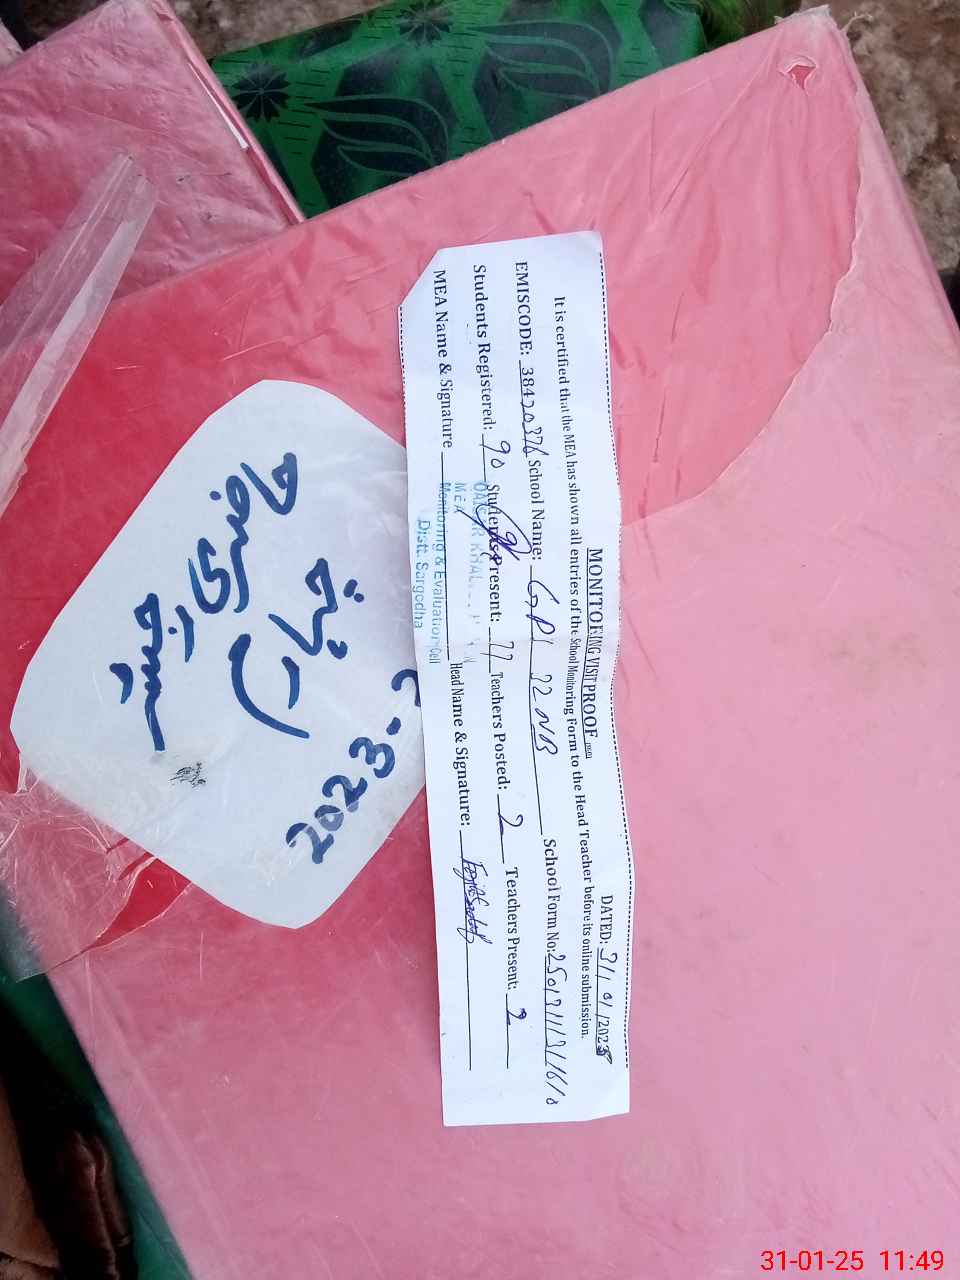 MONITORING VISIT PROOF
DATED: 31/01/2025
It is certified that the MEA has shown all entries of the School Monitoring Form to the Head Teacher before its online submission.
EMISCODE: 38420376 School Name: GPS 72 NB School Form No:
Students Registered: 90 Students Present: 77 Teachers Posted: 2 Teachers Present: 2
MEA Name & Signature Head Name & Signature:
MEA
Monitoring & Evaluation Cell
Distt. Sargodha
حاضری
2023
31-01-25 11:49